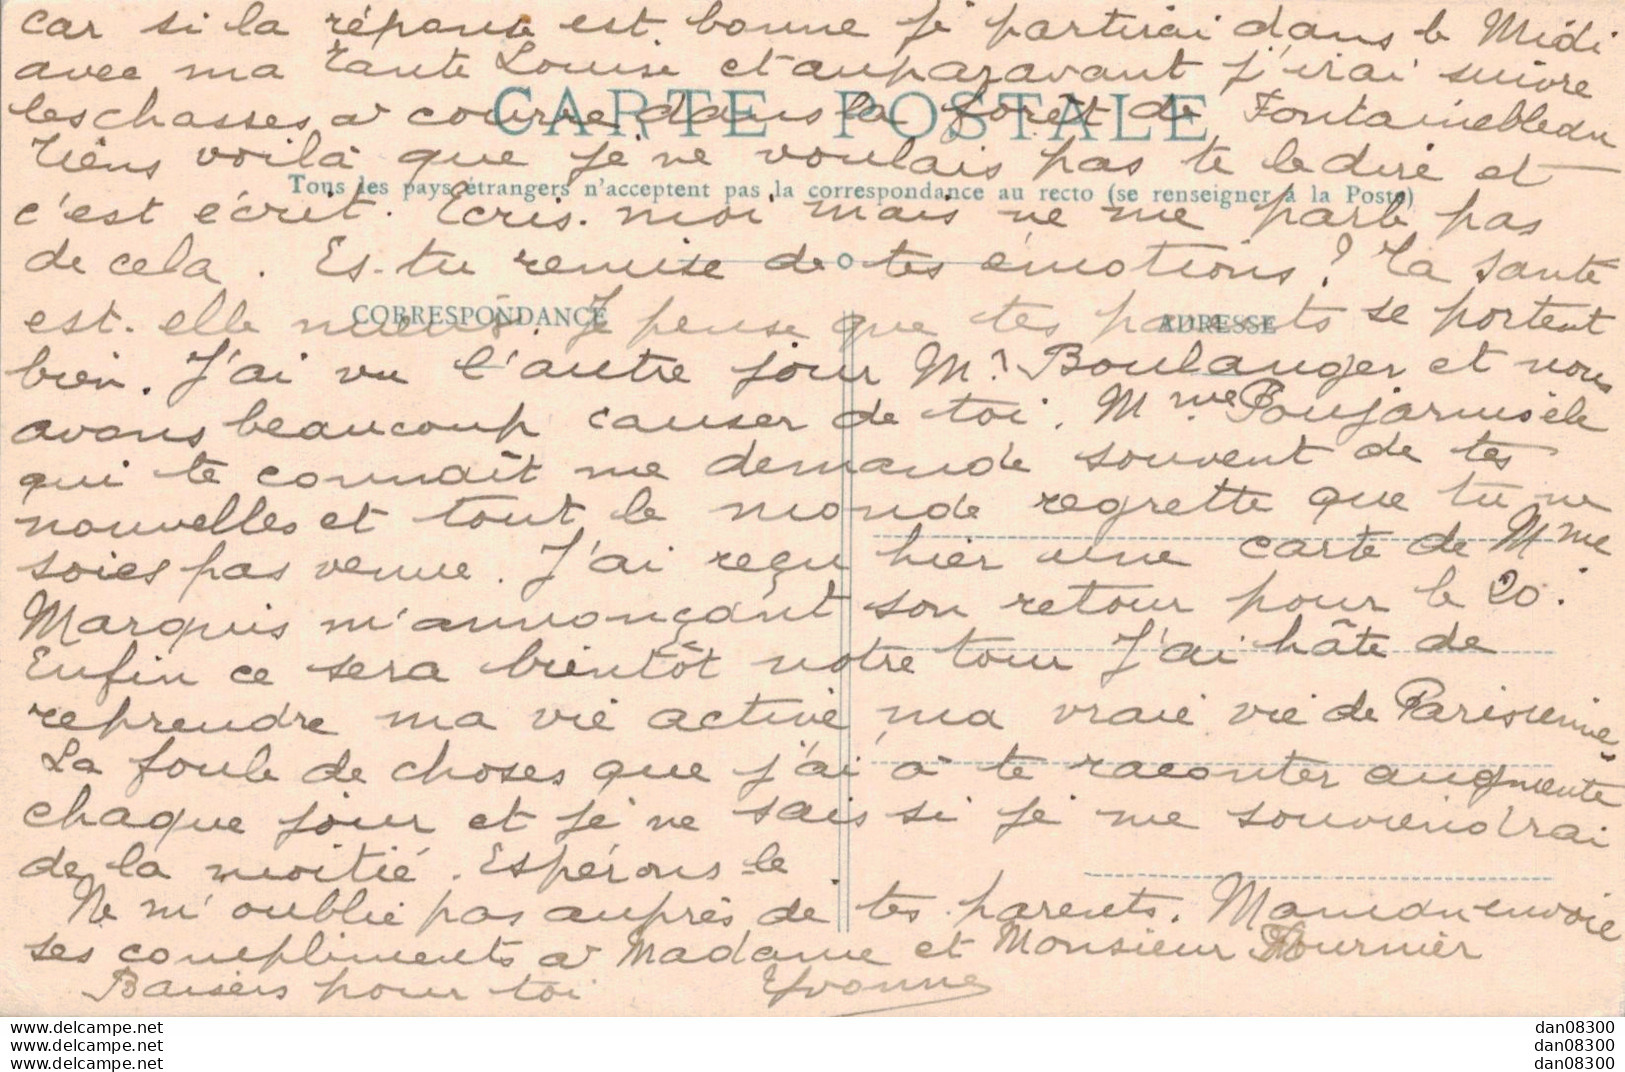 car si la réponse est bonne je partirai dans le Midi
avec ma Tante Louise et auparavant j'irai suivre
les chasses à courre dans la forêt de Fontainebleau
CARTE POSTALE
Tiens voilà que je ne voulais pas te le dire et
Tous les pays étrangers n'acceptent pas la correspondance au recto (se renseigner à la Poste)
c'est écrit. Ecris-moi mais ne me parle pas
de cela. Es-tu remise de tes émotions? Ta santé
CORRESPONDANCE
ADRESSE
est-elle mieux. Je pense que tes parents se portent
bien. J'ai vu l'autre jour Mr Boulanger et nous
avons beaucoup causer de toi. Mme
qui te connaît me demande souvent de tes
nouvelles et tout le monde regrette que tu ne
soies pas venue. J'ai reçu hier une carte de Mme
Marquis m'annonçant son retour pour le 20.
Enfin ce sera bientôt notre tour J'ai hâte de
reprendre ma vie active, ma vraie vie de Parisienne
La foule de choses que j'ai à te raconter augmente
chaque jour et je ne sais si je me souviendrai
de la moitié. Espérons-le.
Ne m'oublie pas auprès de tes parents. Maman envoie
ses compliments à Madame et Monsieur Fournier
Baisers pour toi Yvonne
www.delcampe.net
www.delcampe.net
www.delcampe.net
dan08300
dan08300
dan08300